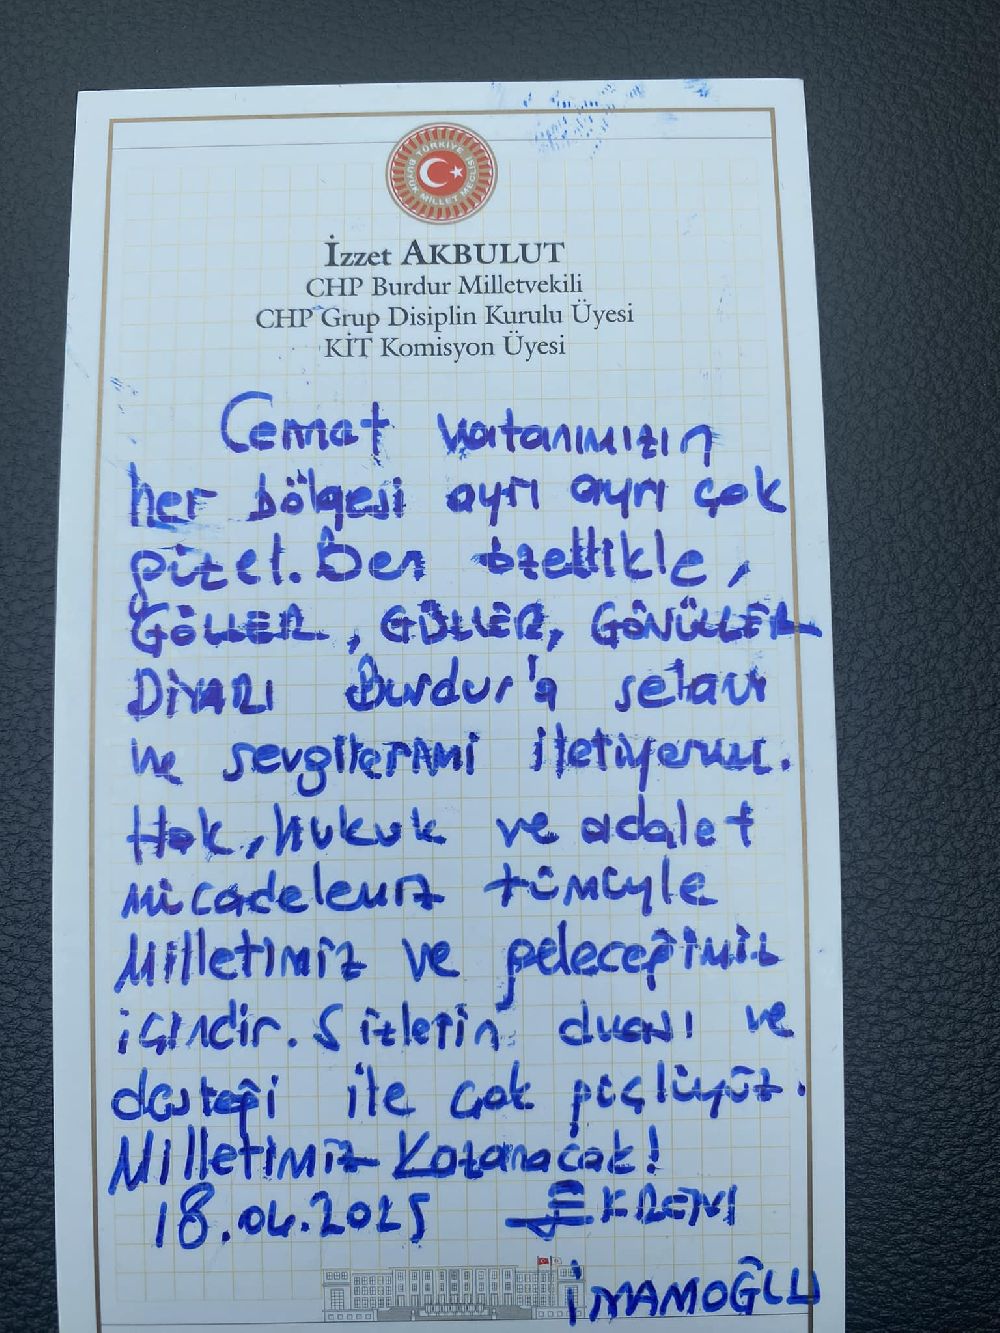 TÜRKİYE BÜYÜK MİLLET MECLİSİ
İzzet AKBULUT
CHP Burdur Milletvekili
CHP Grup Disiplin Kurulu Üyesi
KİT Komisyon Üyesi
Cennet vatanımızın
her bölgesi ayrı ayrı çok
güzel. Ben özellikle,
GÖLLER, GÜLLER, GÖNÜLLER
DİYARI Burdur'a selam
ve sevgilerimi iletiyorum.
Hak, hukuk ve adalet
mücadelemiz tümüyle
Milletimiz ve geleceğimiz
içindir. Sizlerin duası ve
desteği ile çok güçlüyüz.
Milletimiz Kazanacak!
18.04.2025 EKREM
İMAMOĞLU